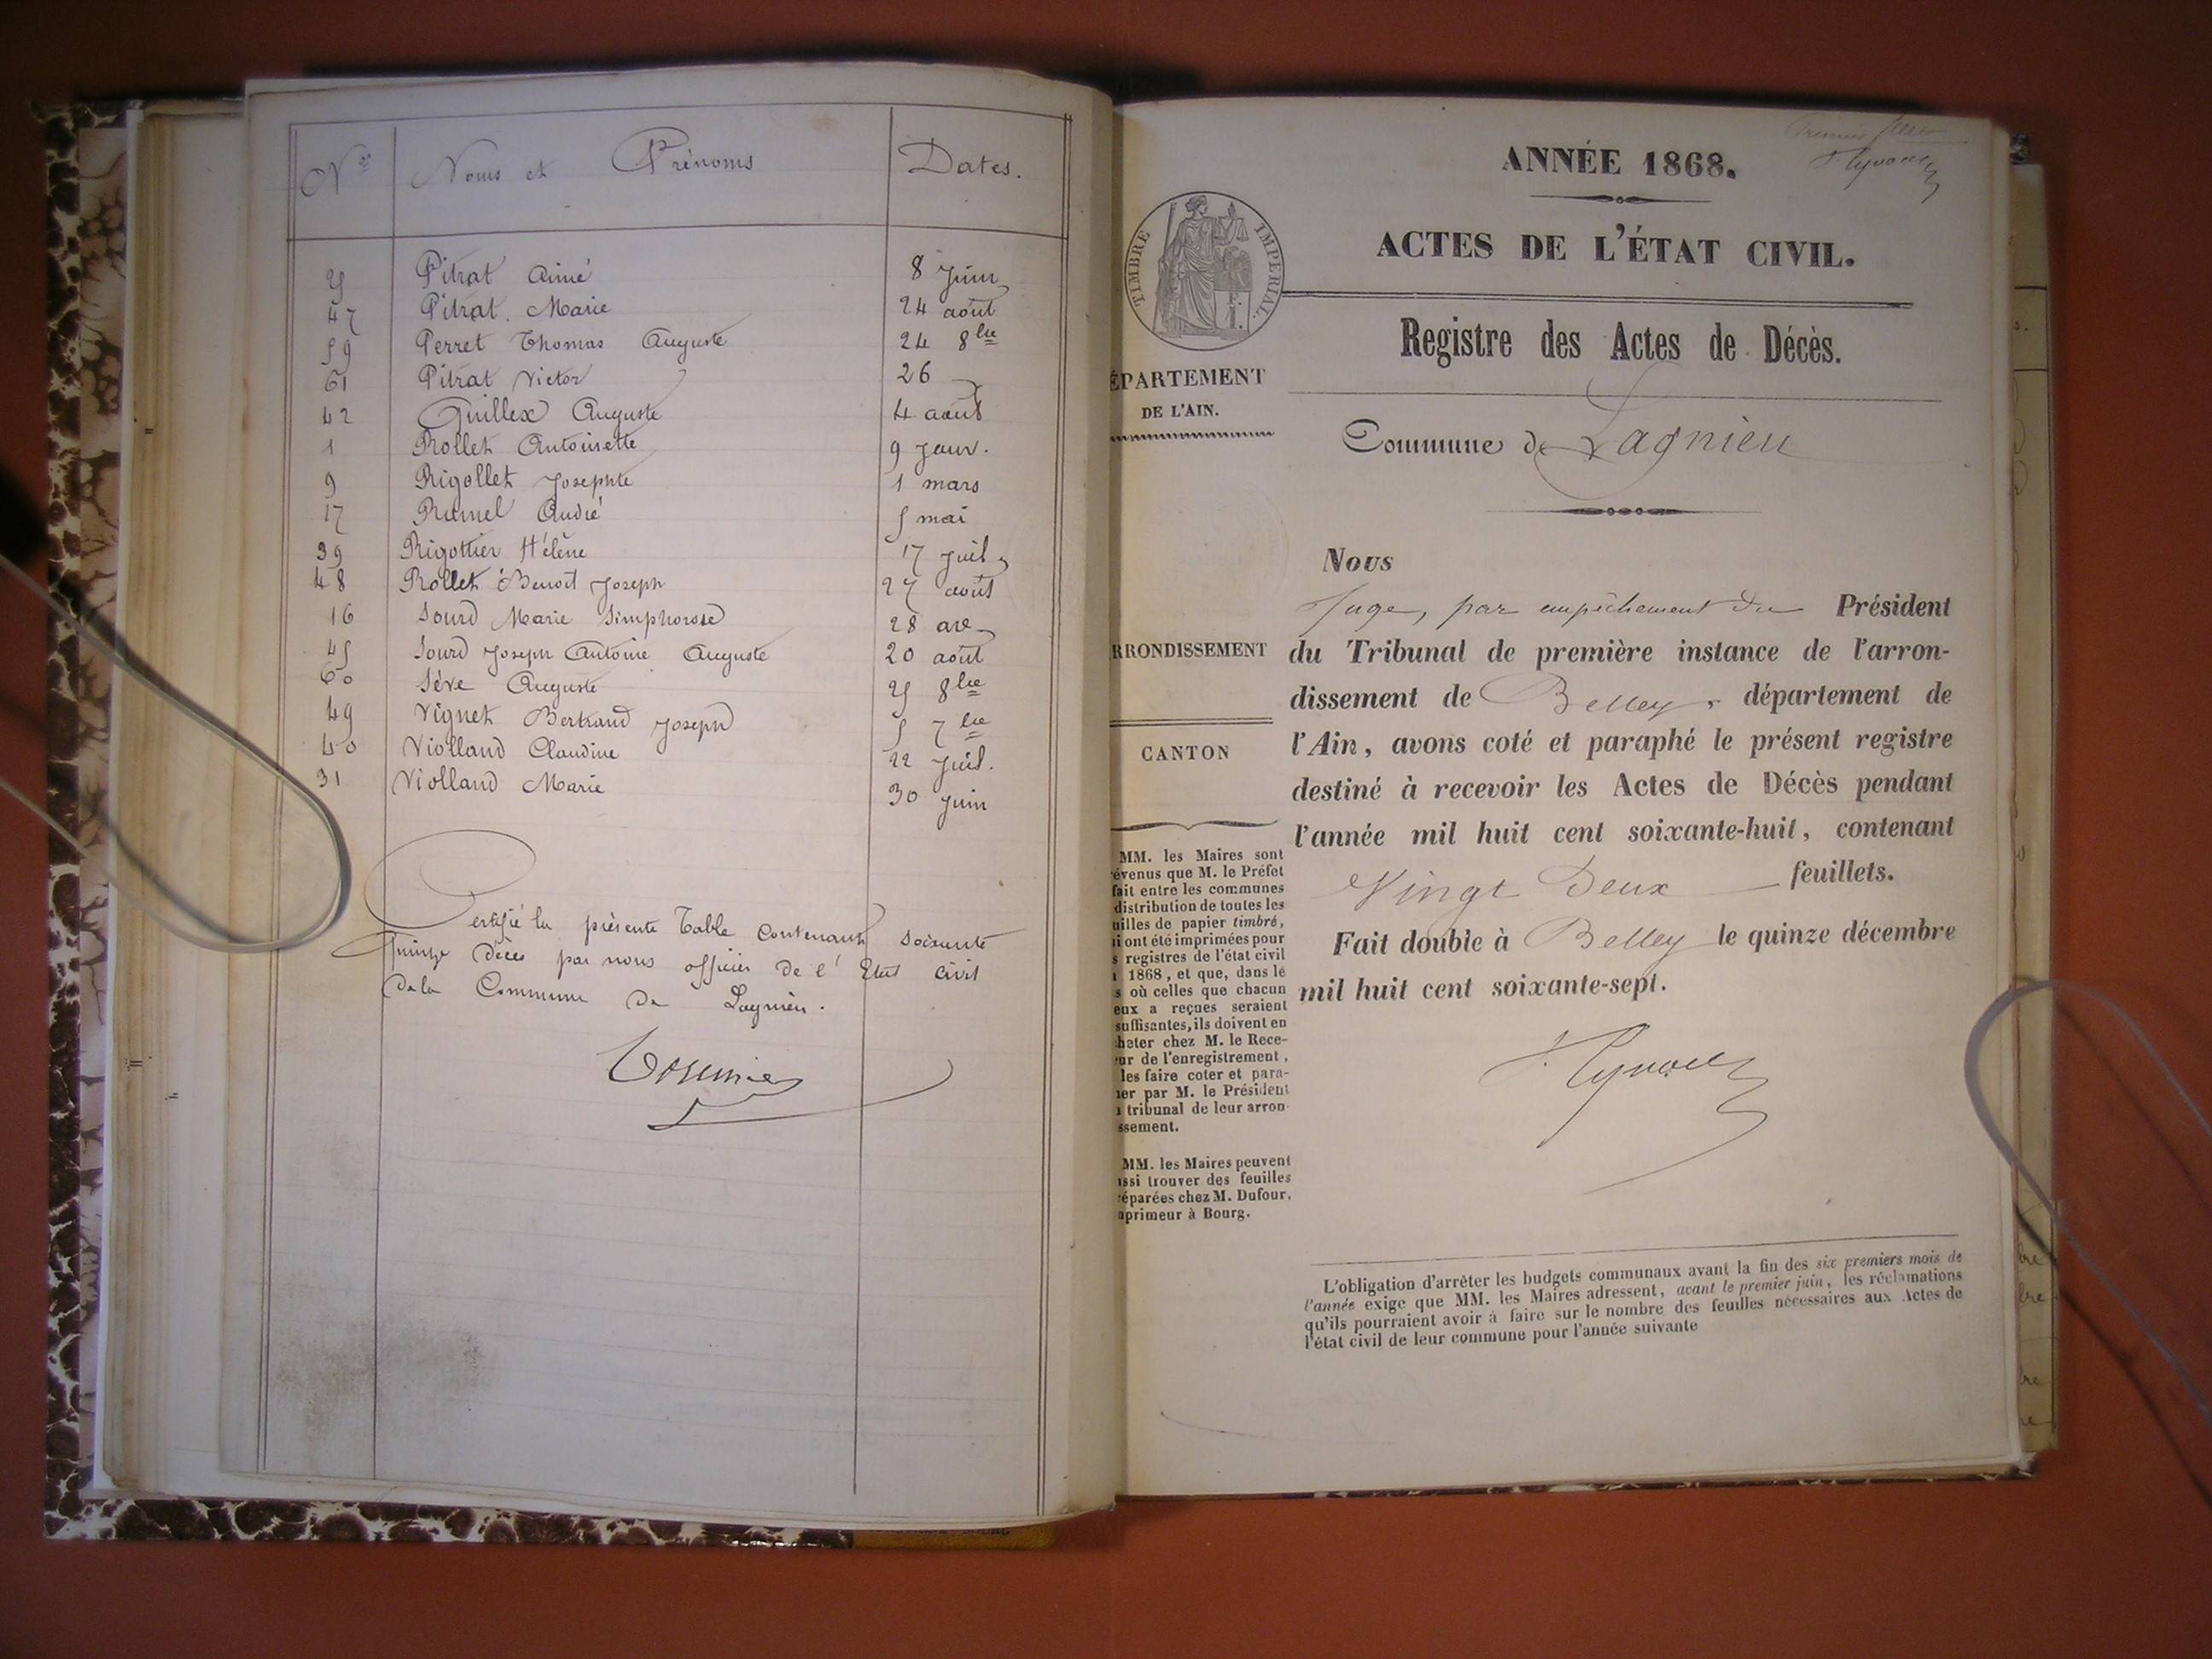 Nos Noms et Prénoms Dates.
25 Pitrat Aimé 8 Juin
47 Pitrat Marie 24 août
59 Perret Thomas Auguste 24 8bre
61 Pitrat Victor 26
42 Quillex Auguste 4 août
1 Rollet Antoinette 9 Janv.
9 Rigollet Josephte 1 mars
17 André 5 mai
39 Rigottier Hélène 17 Juil
48 Rollet Benoit Joseph 27 août
16 Sourd Marie Simphorose 28 av
45 Sourd Joseph Antoine Auguste 20 août
60 Sève Auguste 25 8bre
49 Vignet Bertrand Joseph 5 7bre
40 Violland Claudine 22 Juil.
31 Violland Marie 30 Juin
Certifié la présente Table Contenant soixante
quinze Décès par nous officier de l'Etat Civil
de la Commune de Lagnieu.
ANNÉE 1868.
ACTES DE L'ÉTAT CIVIL.
TIMBRE IMPERIAL.
Registre des Actes de Décès.
ÉPARTEMENT
DE L'AIN.
Commune de Lagnieu
RRONDISSEMENT
CANTON
MM. les Maires sont
évenus que M. le Préfet
fait entre les communes
distribution de toutes les
uilles de papier timbré,
i ont été imprimées pour
s registres de l'état civil
1868, et que, dans le
s où celles que chacun
eux a reçues seraient
suffisantes, ils doivent en
heter chez M. le Rece-
ur de l'enregistrement,
les faire coter et para-
er par M. le Président
tribunal de leur arron-
ssement.
MM. les Maires peuvent
ssi trouver des feuilles
éparées chez M. Dufour,
primeur à Bourg.
Nous
Juge, par empêchement du Président
du Tribunal de première instance de l'arron-
dissement de Belley, département de
l'Ain, avons coté et paraphé le présent registre
destiné à recevoir les Actes de Décès pendant
l'année mil huit cent soixante-huit, contenant
Vingt Deux feuillets.
Fait double à Belley le quinze décembre
mil huit cent soixante-sept.
L'obligation d'arrêter les budgets communaux avant la fin des six premiers mois de
l'année exige que MM. les Maires adressent, avant le premier juin, les réclamations
qu'ils pourraient avoir à faire sur le nombre des feuilles nécessaires aux Actes de
l'état civil de leur commune pour l'année suivante